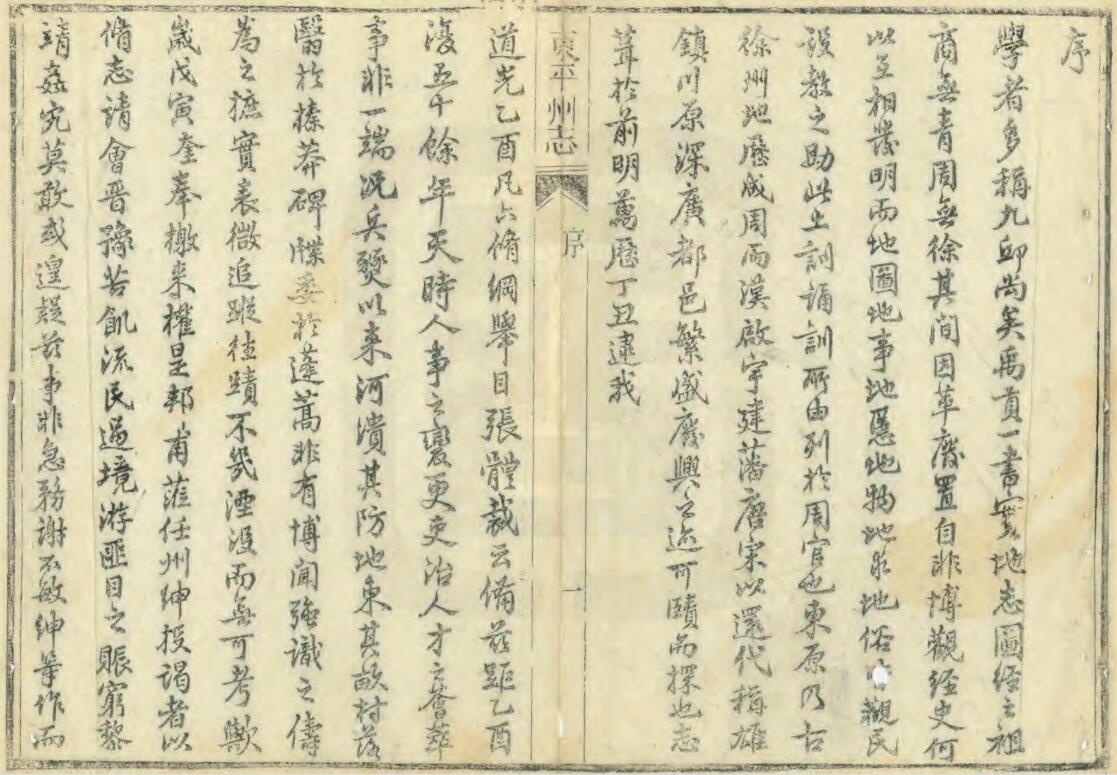 序
學者多稱九邱尚矣禹貢一書實地志圖經之祖
商無青周無徐其間因革廢置自非博觀經史何
以互相發明而地圖地事地慝地物地求地俗觀民
設教之助此土訓誦訓所由列於周官也東原乃古
徐州地歷成周兩漢啟宇建藩唐宋以還代稱雄
鎮川原深廣都邑繁盛廢興之迹可賾而探也志
葺於前明萬歷丁丑逮我
東平州志
序
一
道光乙酉凡六脩綱舉目張體裁云備茲距乙酉
復五十餘年天時人事之變更吏治人才之薈萃
事非一端況兵燹以來河潰其防地東其畝村落
翳於榛莽碑牒委於蓬蒿非有博聞強識之儔
為之摭實表微追蹤往蹟不幾湮沒而無可考歟
歲戊寅奎奉檄來權是邦甫蒞任州紳授謁者以
脩志請會晉豫苦飢流民過境游匪目之賑窮黎
靖姦宄莫敢或遑疑茲事非急務謝不敏紳等作而